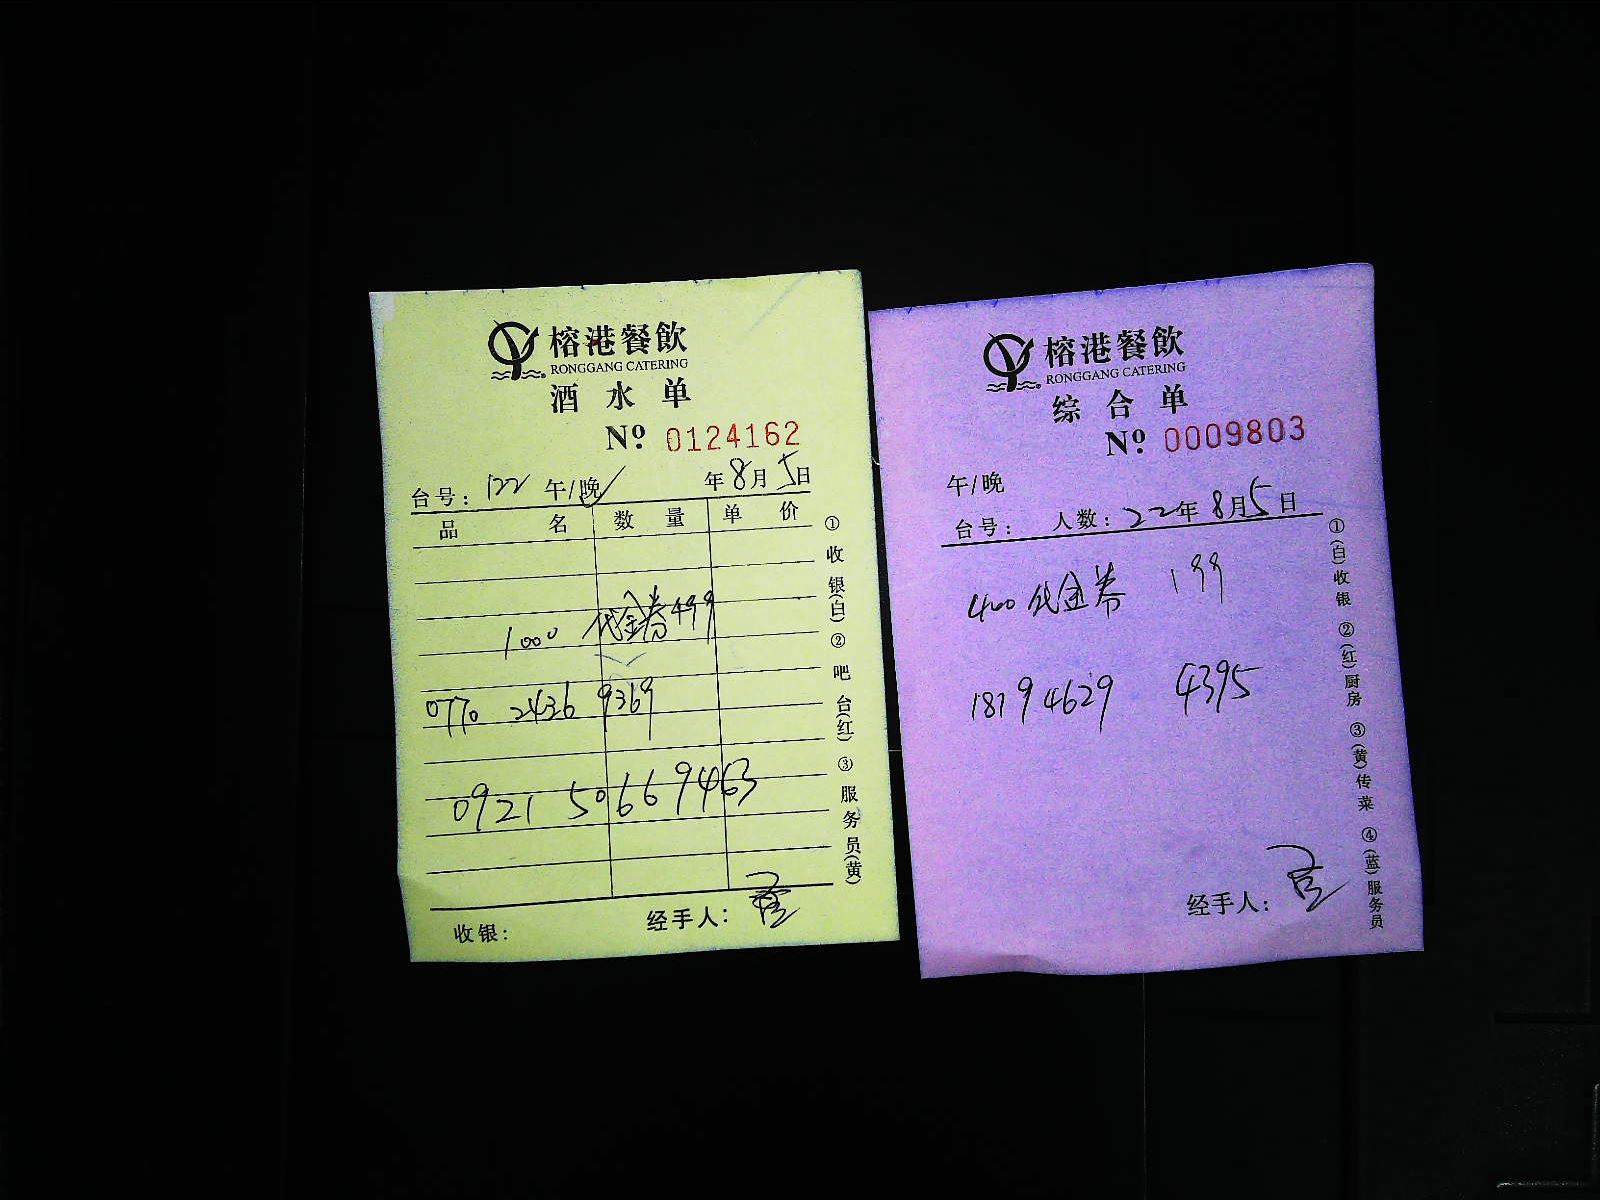 榕港餐飲
RONGGANG CATERING
酒水单
Nº 0124162
台号: 122 午/晚 年8月5日
品名 数量 单价
1000 代金券499
0770 2436 9369
0921 50669463
收银: 经手人:
①收银(白) ②吧台(红) ③服务员(黄)
榕港餐飲
RONGGANG CATERING
综合单
Nº 0009803
午/晚
台号: 人数: 22年8月5日
400代金券 199
18194629 4395
经手人:
①(白)收银 ②(红)厨房 ③(黄)传菜 ④(蓝)服务员